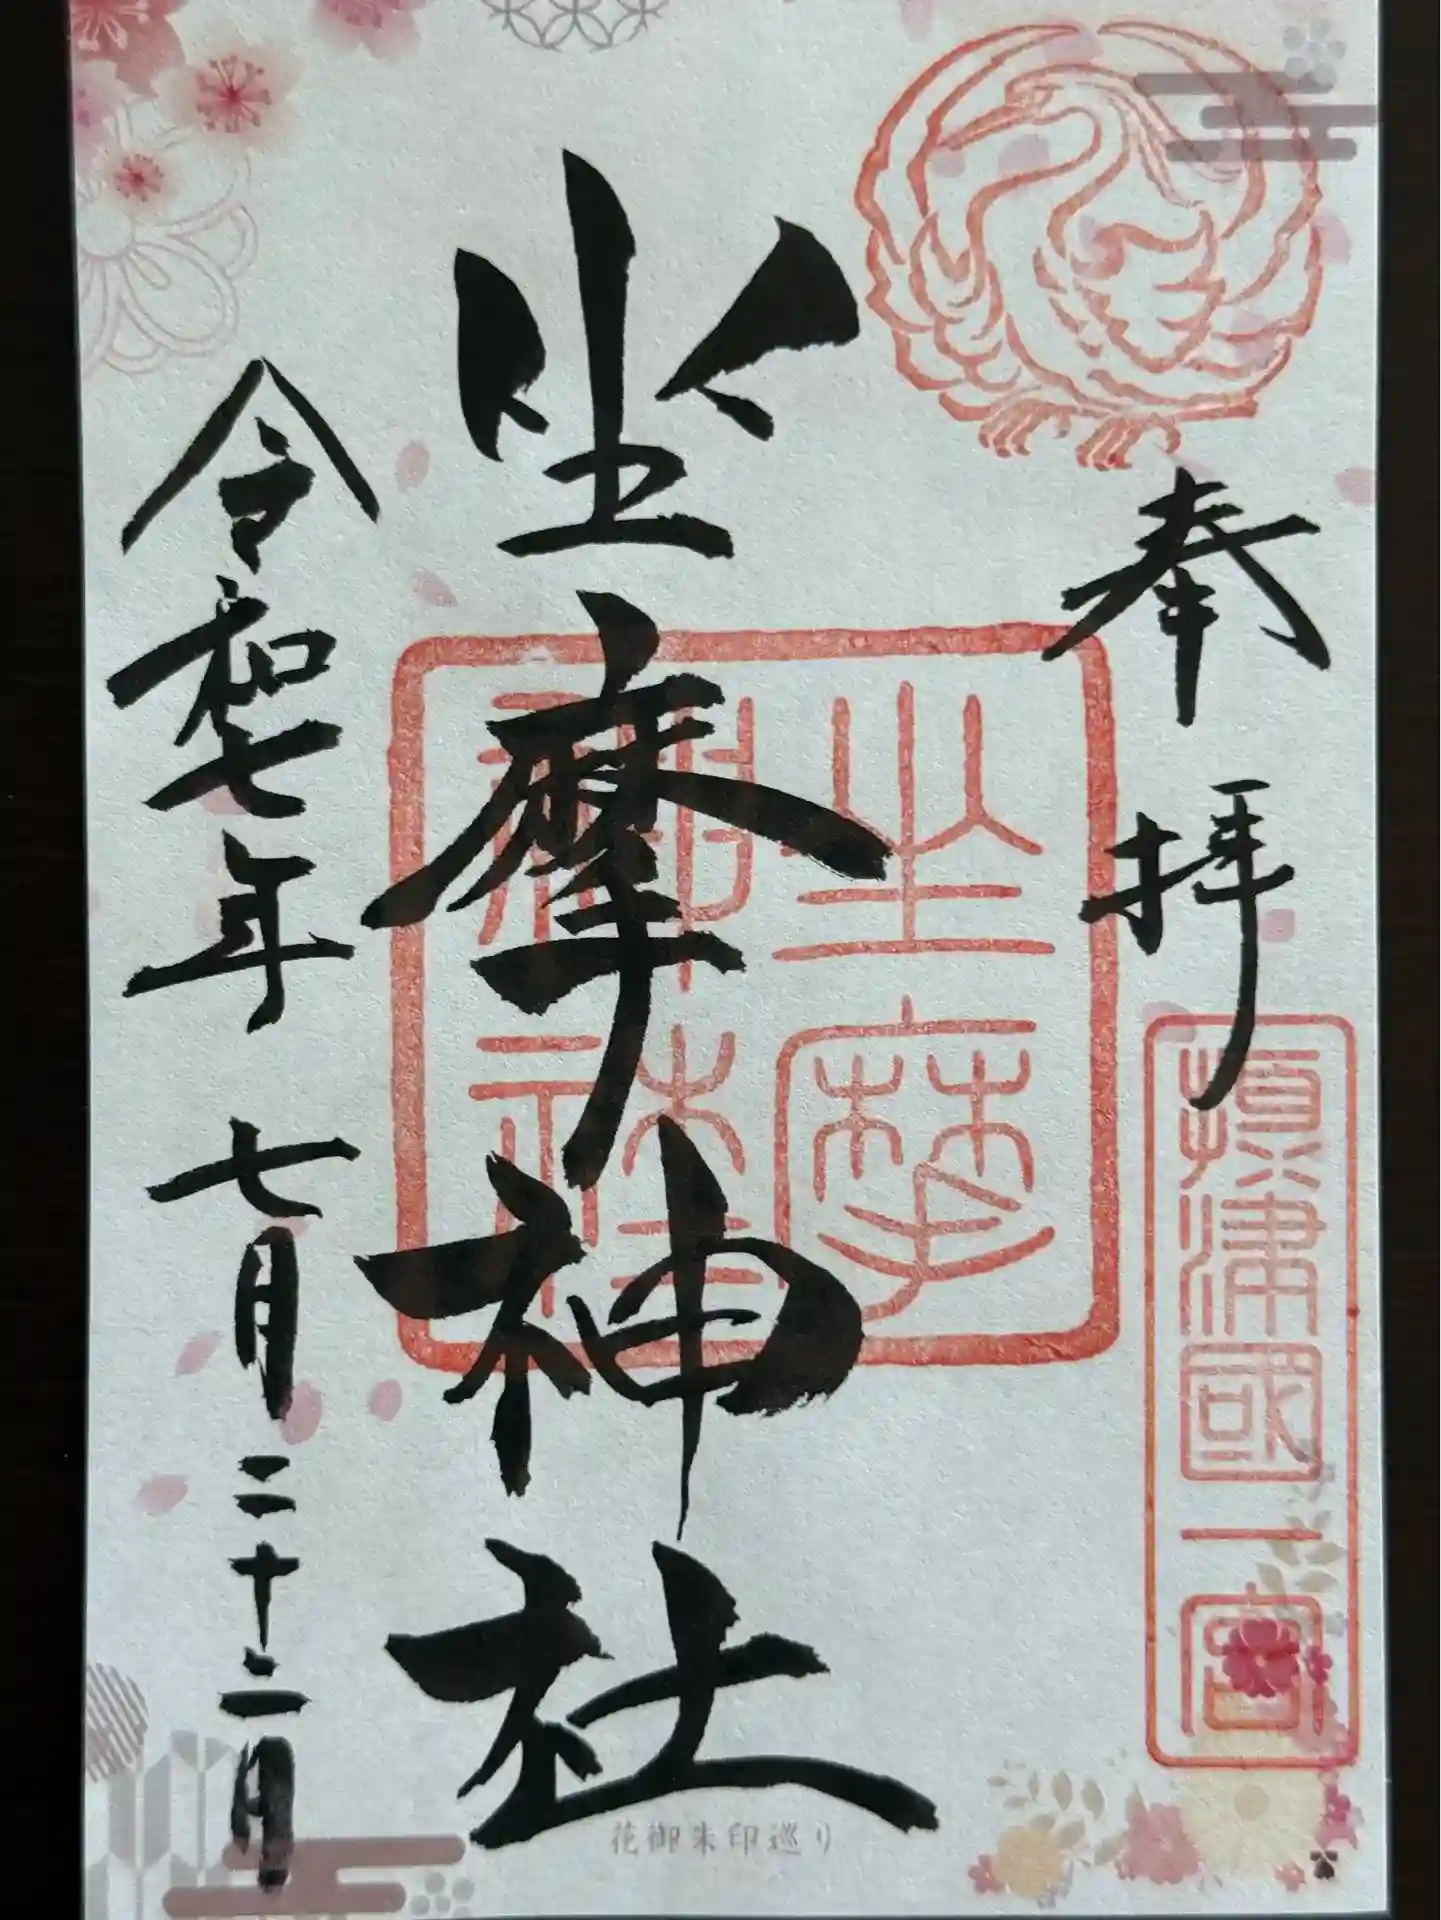 奉拝
攝津國一宮
坐摩神社
坐摩
神社
令和七年 七月二十二日
花御朱印巡り